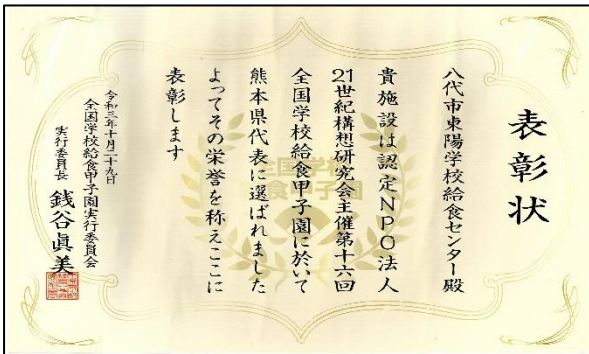 表彰状
八代市東陽学校給食センター殿
貴施設は認定NPO法人
21世紀構想研究会主催第十六回
全国学校給食甲子園に於いて
熊本県代表に選ばれました
よってその栄誉を称えここに
表彰します
令和三年十月二十九日
全国学校給食甲子園実行委員会
実行委員長 銭谷眞美
全国学校
給食甲子園